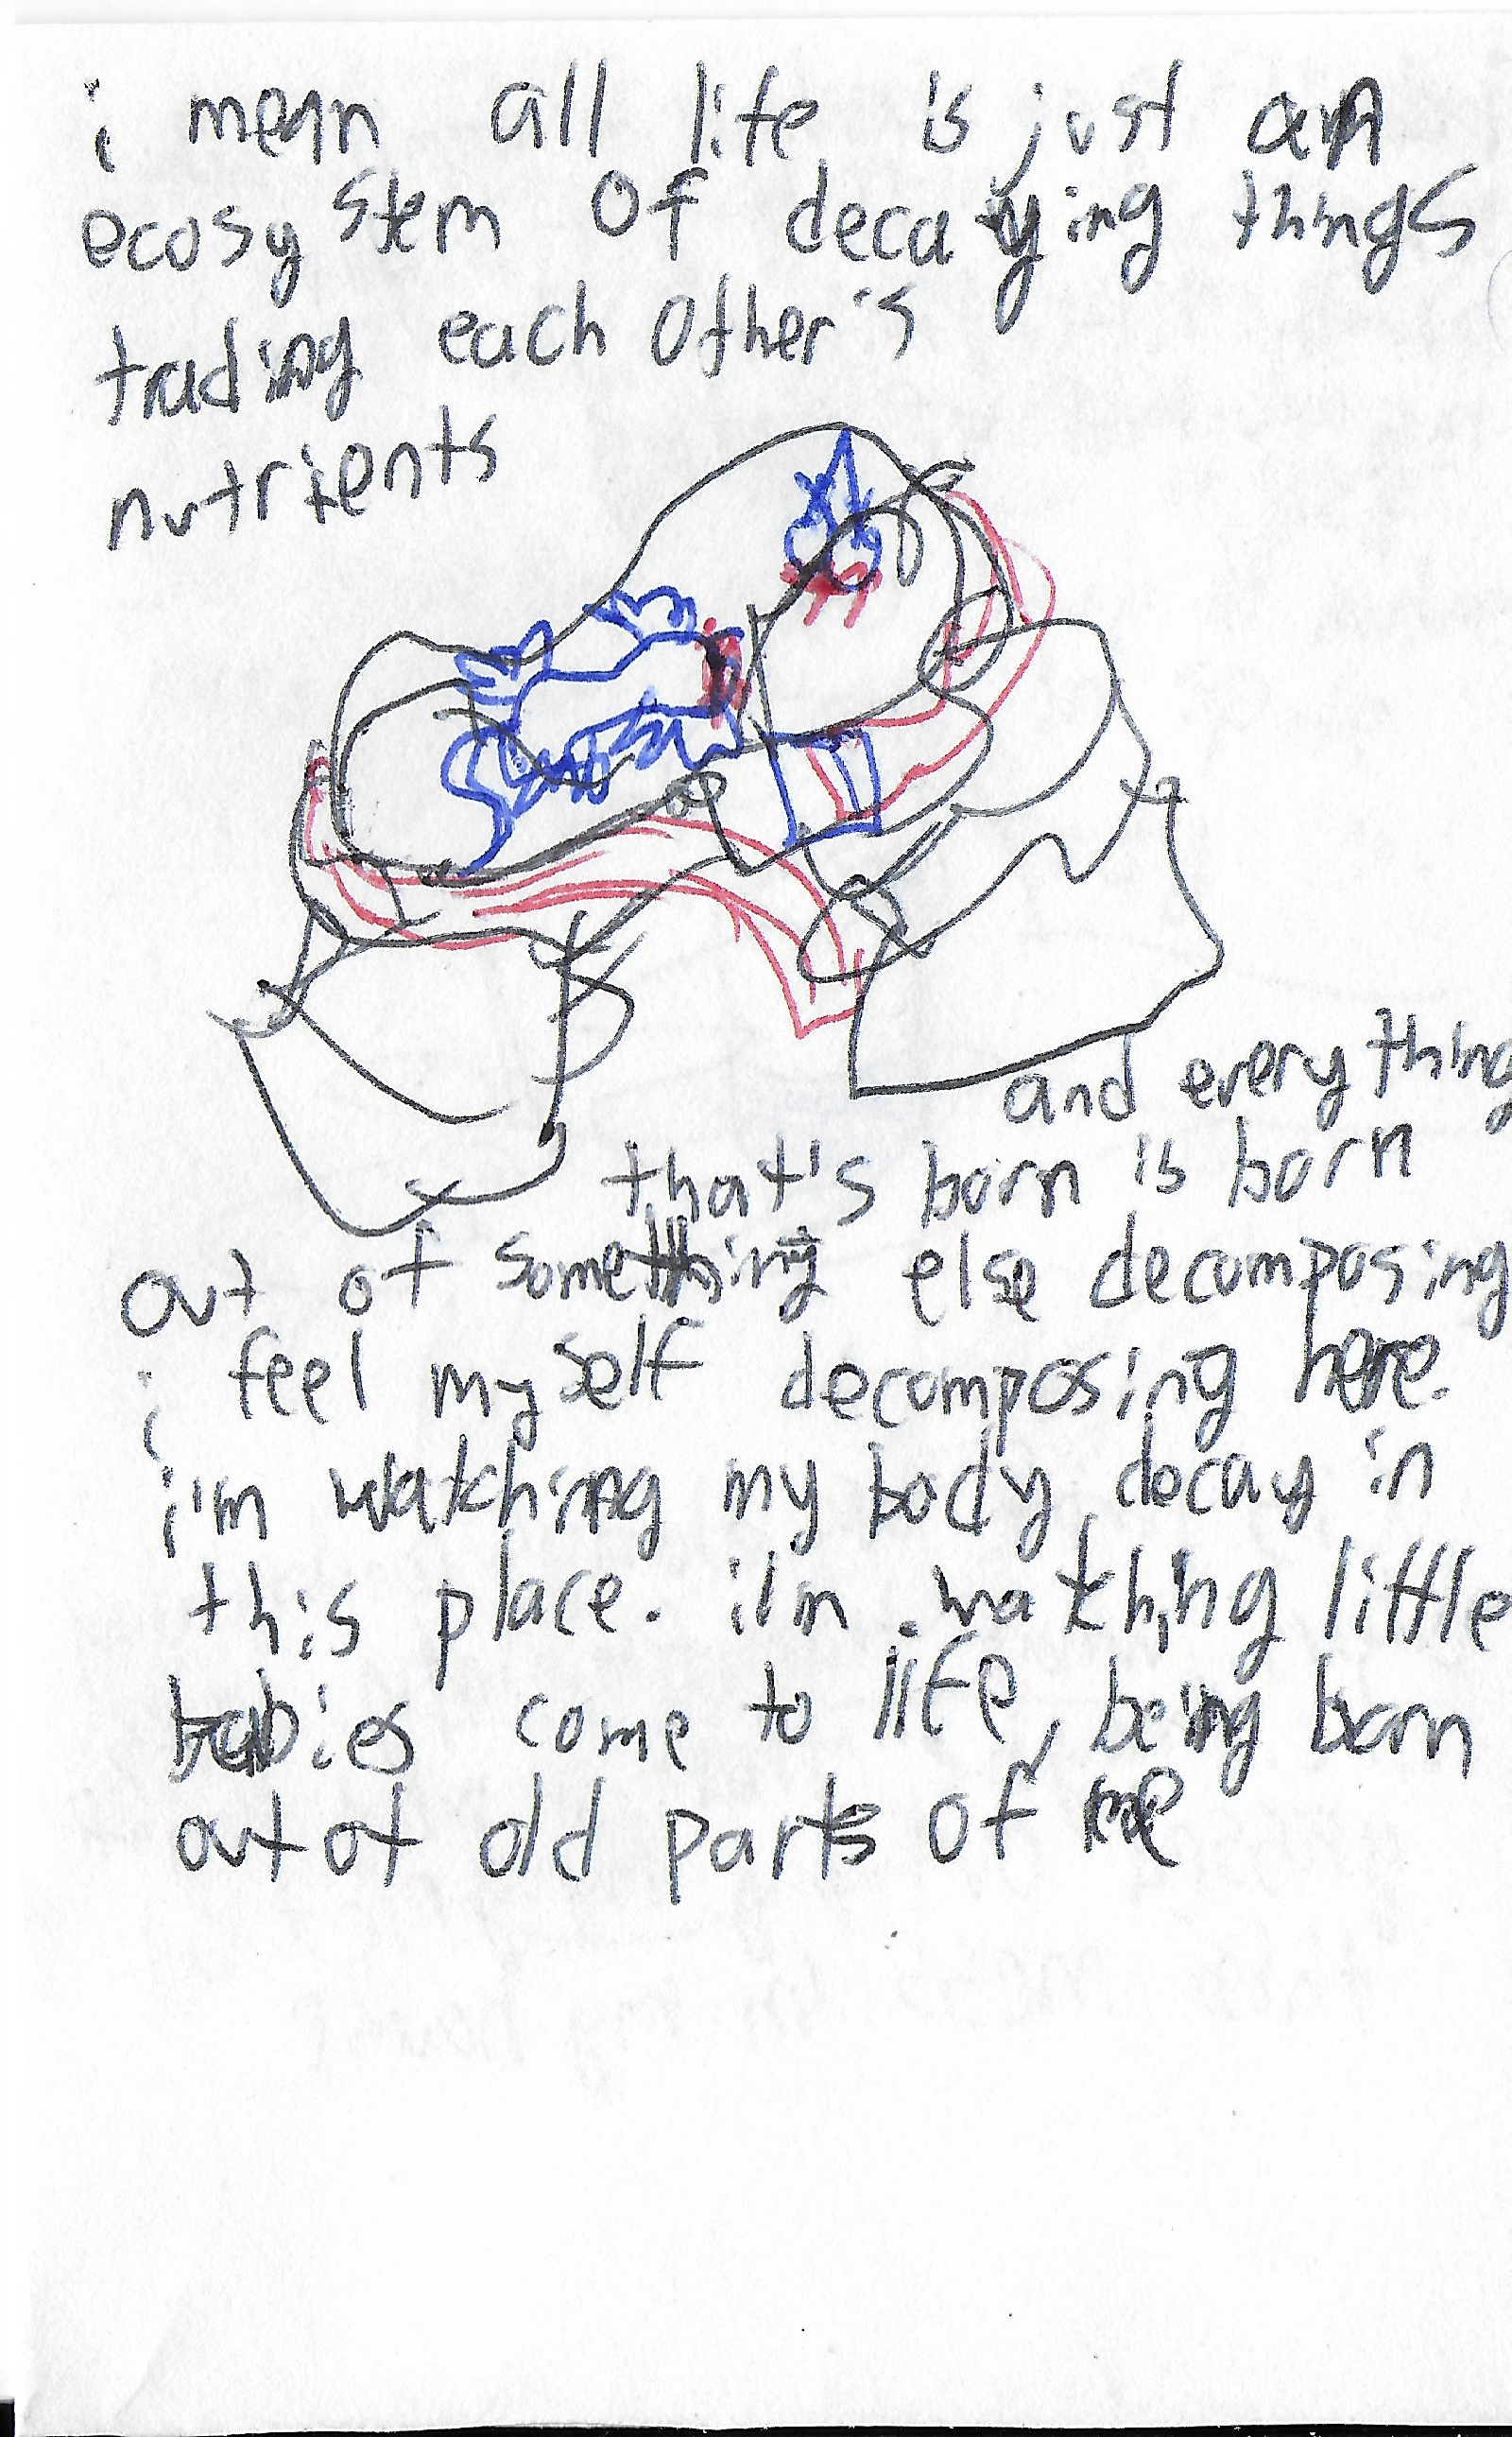 i mean all life is just an
ecosystem of decaying things
trading each other's
nutrients
and everything
that's born is born
out of something else decomposing
i feel myself decomposing here.
i'm watching my body decay in
this place. i'm watching little
babies come to life, being born
out of old parts of me